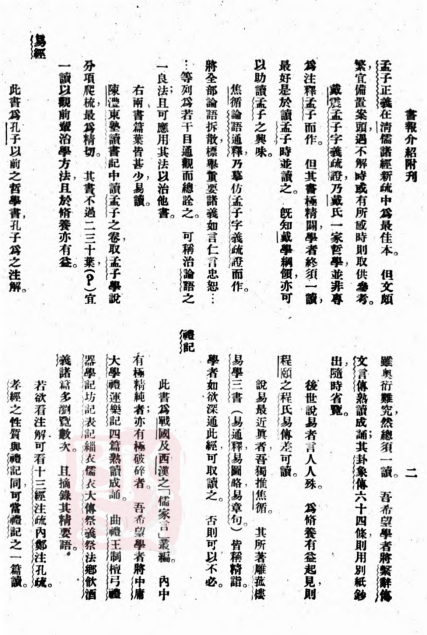 書報介紹附刊
孟子正義在清儒諸經新疏中為最佳本。但文頗
繁宜備置案頭遇不解時或有所感時則取供參考。
戴震孟子字義疏證乃戴氏一家哲學並非專
為注釋孟子而作。但其書極精闢學者終須一讀。
最好是於讀孟子時並讀之。既知戴學綱領亦可
以助讀孟子之興味。
焦循論語通釋乃摹仿孟子字義疏證而作。
將全部論語拆散標舉重要諸義如言仁言忠恕…
…等列為若干目通觀而總詮之。可稱治論語之
一良法且可應用其法以治他書。
右兩書篇葉皆甚少易讀。
陳澧東塾讀書記中讀孟子之卷取孟子學說
分項爬梳最為精切。其書不過二三十葉(?)宜
一讀以觀前輩治學方法且於脩養亦有益。
易經
此書為孔子以前之哲學書孔子為之注解。
二
雖奧衍難究然總須一讀。吾希望學者將繫辭傳
文言傳熟讀成誦其卦象傳六十四條則用別紙鈔
出隨時省覽。
後世說易者言人人殊。為脩養有益起見則
程頤之程氏易傳差可讀。
說易最近眞者吾獨推焦循。其所著雕菰樓
易學三書(易通釋易圖略易章句)皆稱精詣。
學者如欲深通此經可取讀之。否則可以不必。
禮記
此書為戰國及西漢之「儒家言」叢編。內中
有極精純者亦有極破碎者。吾希望學者將中庸
大學禮運樂記四篇熟讀成誦。曲禮王制檀弓禮
器學記坊記表記緇衣儒衣大傳祭義祭法鄉飲酒
義諸篇多瀏覽數次。且摘錄其精要語。
若欲看注解可看十三經注疏內鄭注孔疏。
孝經之性質與禮記同可當禮記之一篇讀。